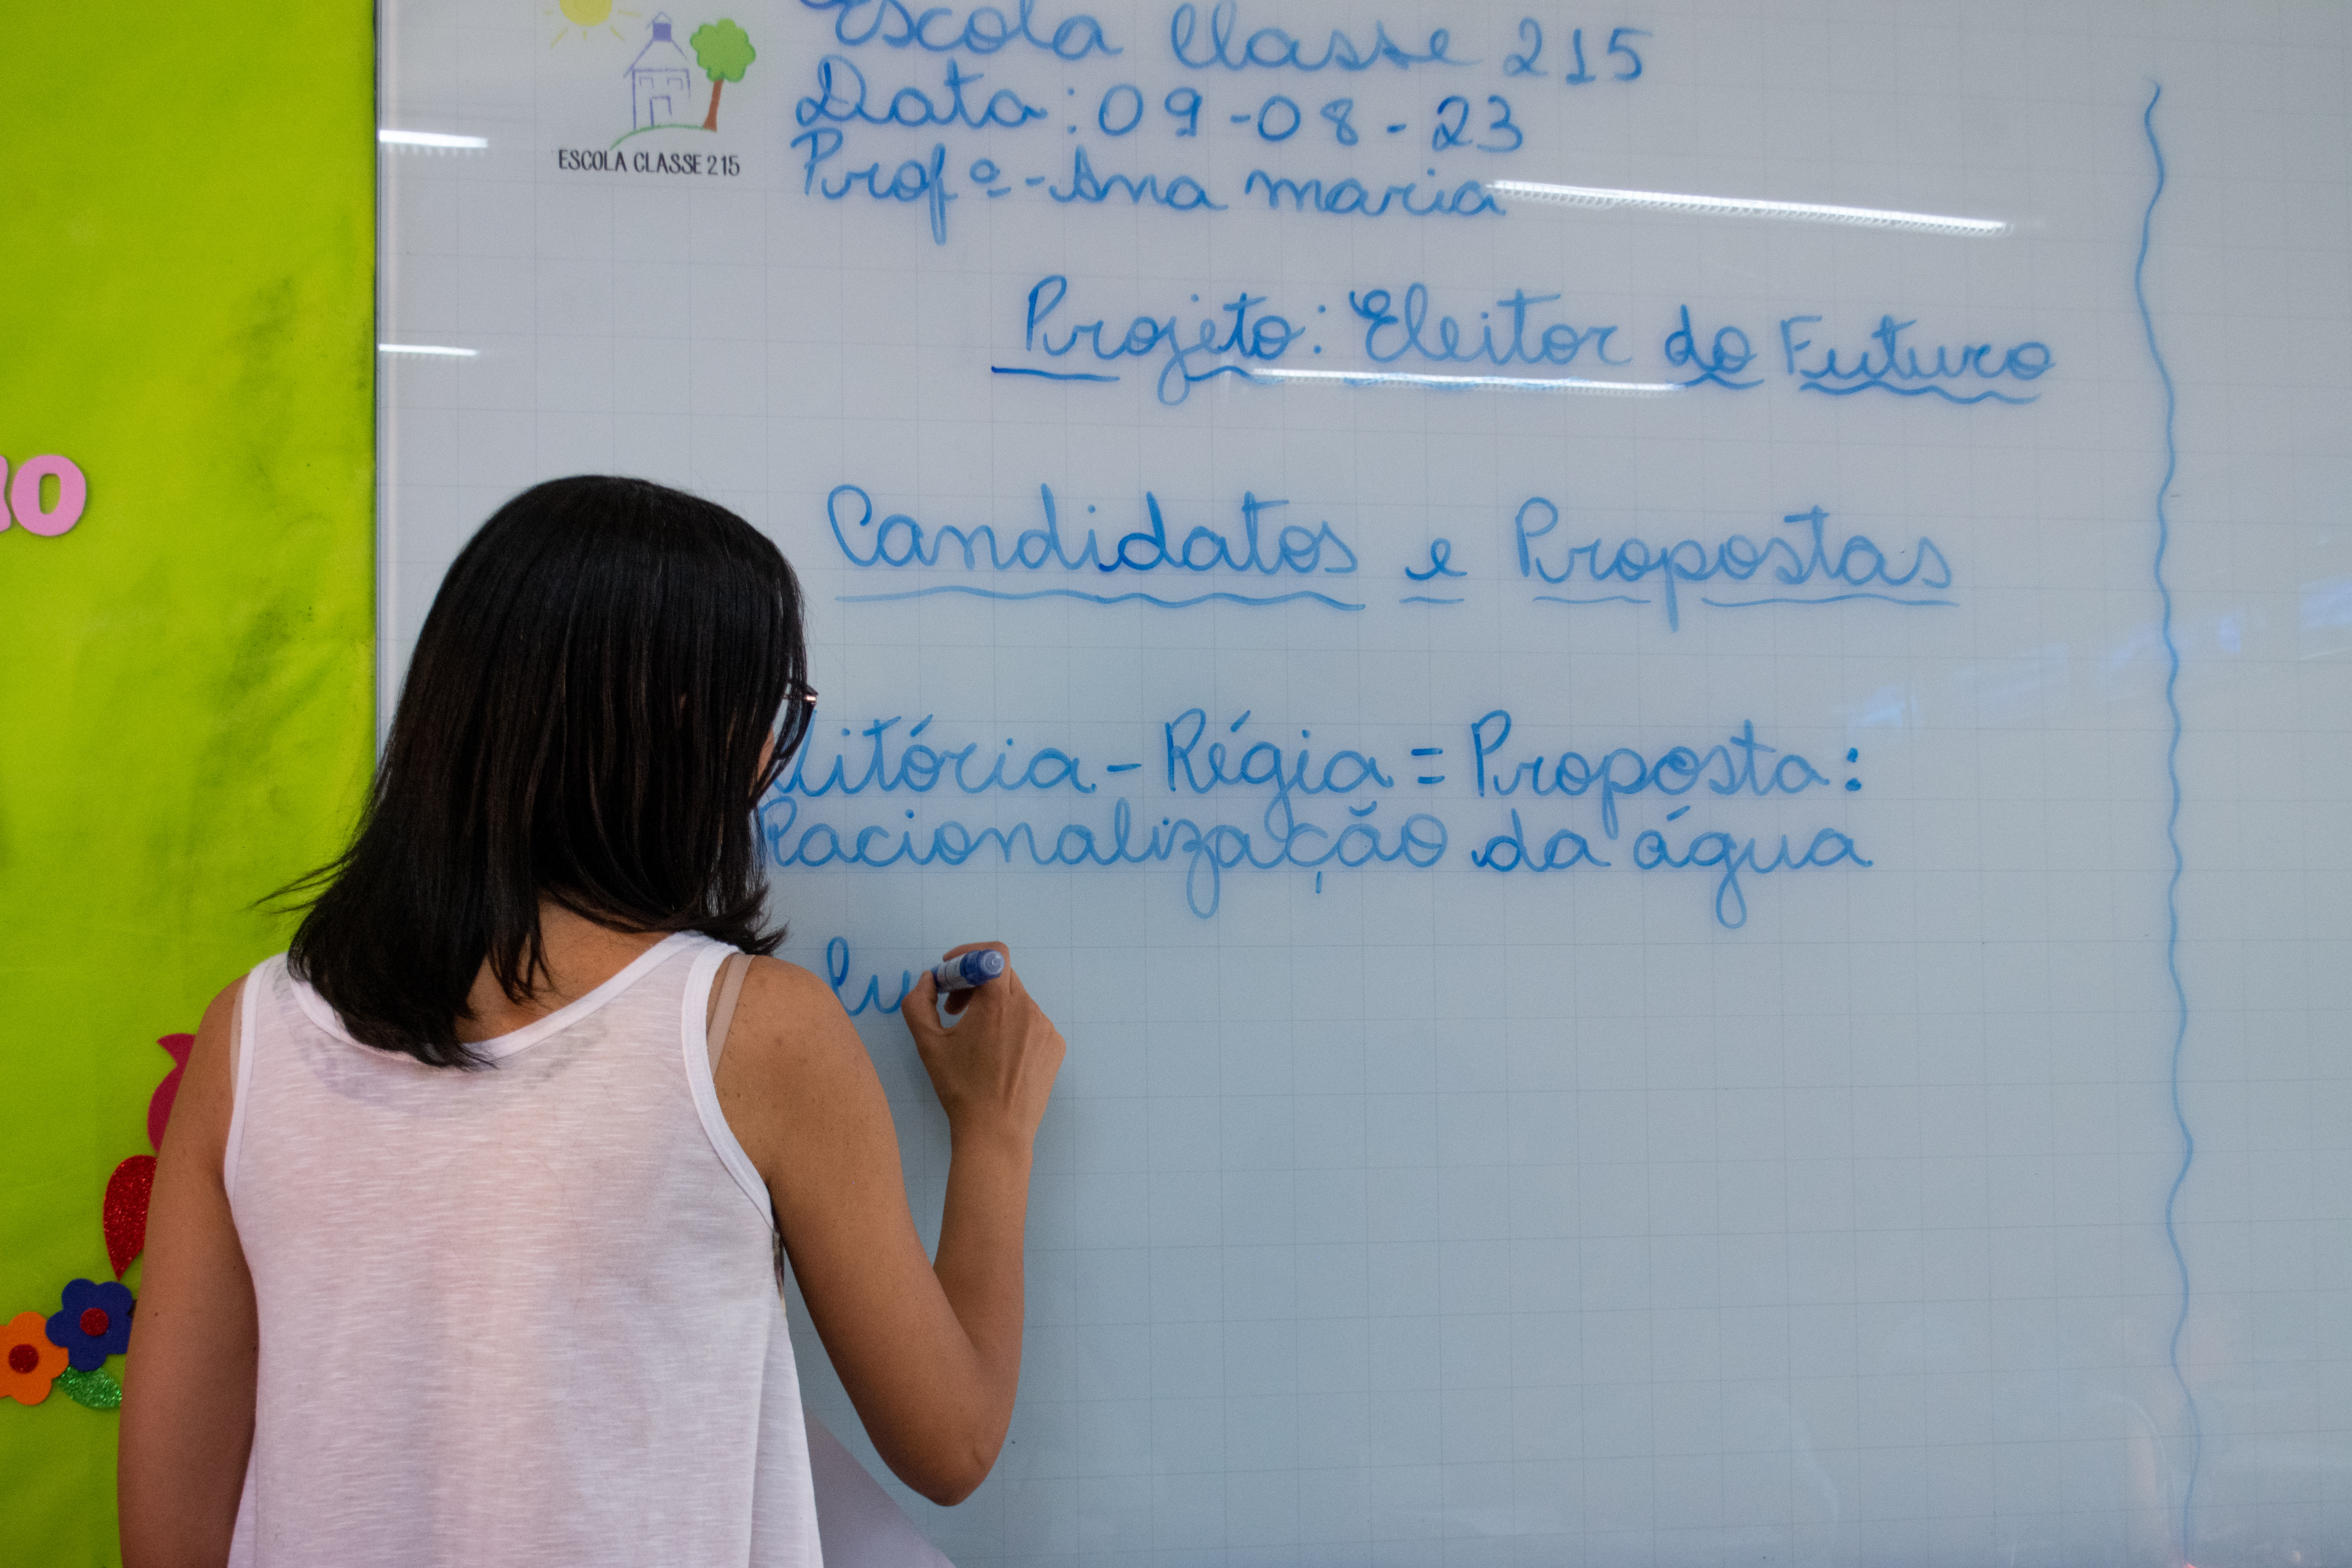 Escola Classe 215
ESCOLA CLASSE 215
Data: 09-08-23
Profª - Ana maria
Projeto: Eleitor do Futuro
Candidatos e Propostas
Régia = Proposta:
Racionalização da água